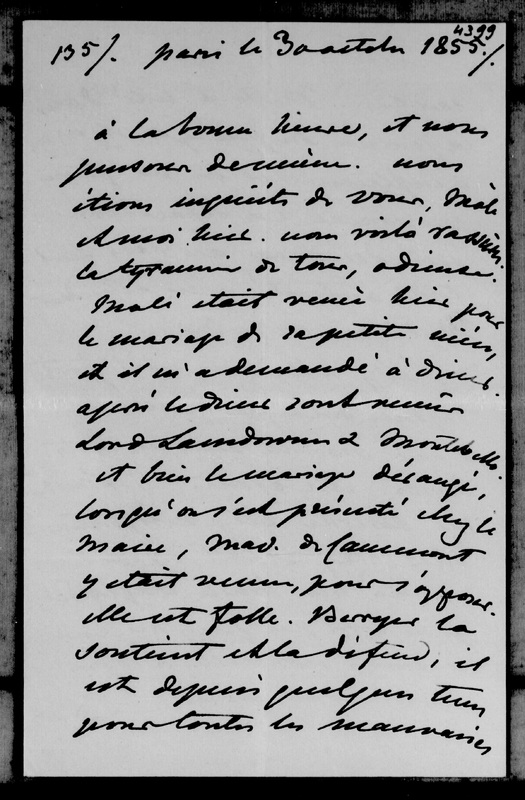 4399
135/. paris le 30 octobre 1855./.
à la bonne heure, et nous
pensons de même. nous
étions inquiets de vous, Molé
et moi hier. nous voilà rassurés.
la tyrannie de tour, odieuse.
Molé était venu hier pour
le mariage de sa petite nièce,
et il m'a demandé à diner.
après le diner sont venus
Lord Lansdowne & Montebello.
et bien le mariage dérangé,
lorsqu'on s'est présenté chez le
Maire, Mad. de Caumont
y était venue, pour s'opposer.
elle est folle. Berryer la
soutient et la défend, il
est depuis quelques tems
pour toutes les mauvaises